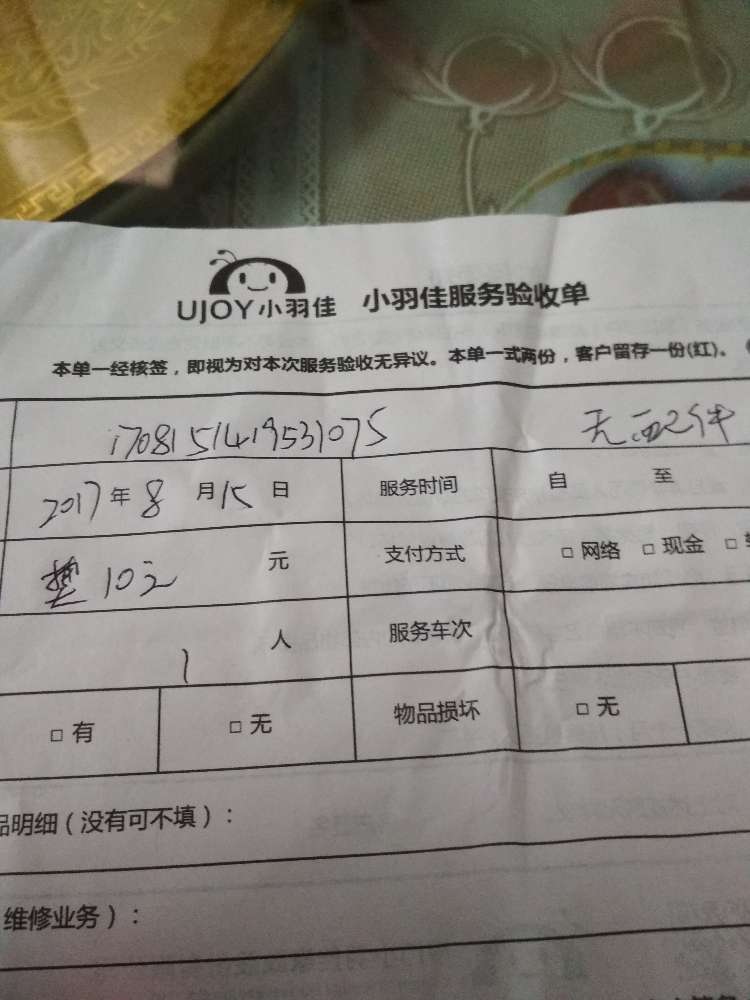 UJOY小羽佳 小羽佳服务验收单
本单一经核签，即视为对本次服务验收无异议。本单一式两份，客户留存一份(红)。
1708151419531075 无配件
2017年8月15日 服务时间 自 至
垫10元 元 支付方式 □ 网络 □ 现金 □
1 人 服务车次
□ 有 □ 无 物品损坏 □ 无
品明细（没有可不填）：
维修业务）：